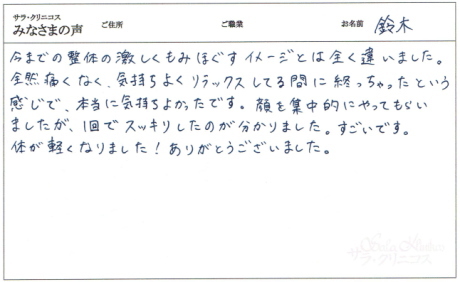 サラ・クリニコス
みなさまの声 ご住所 ご職業 お名前 鈴木
今までの整体の激しくもみほぐすイメージとは全く違いました。
全然痛くなく、気持ちよくリラックスしてる間に終っちゃったという
感じで、本当に気持ちよかったです。顔を集中的にやってもらい
ましたが、1回でスッキリしたのが分かりました。すごいです。
体が軽くなりました！ありがとうございました。
サラ・クリニコス